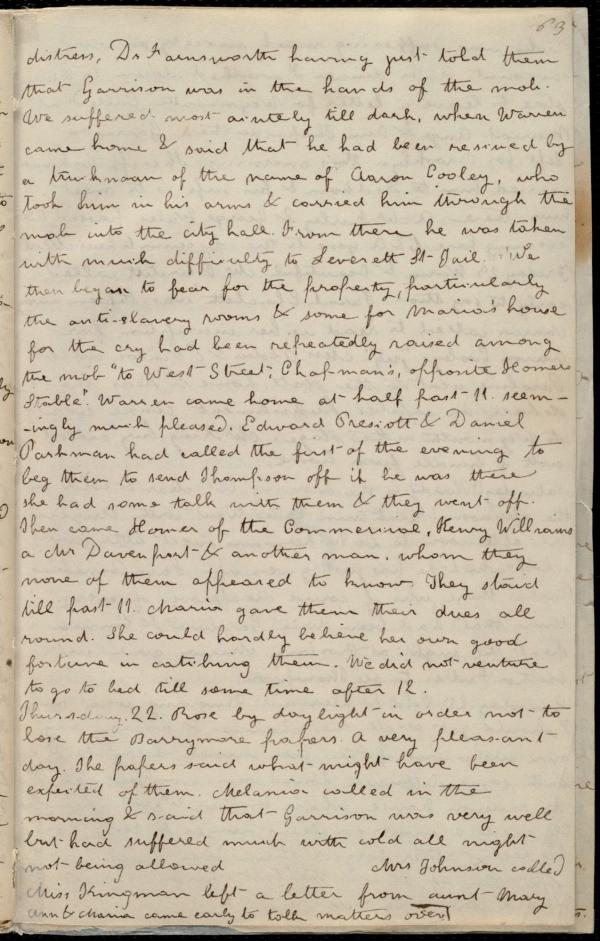 63
distress, Dr Farnsworth having just told them
that Garrison was in the hands of the mob.
We suffered most acutely till dark, when Warren
came home & said that he had been rescued by
a truckman of the name of Aaron Cooley, who
took him in his arms & carried him through the
mob into the city hall. From there he was taken
with much difficulty to Leverett St Jail. We
then began to fear for the property, particularly
the anti-slavery rooms & some for Maria's house
for the cry had been repeatedly raised among
the mob "to West Street, Chapman's, opposite Homers
Stable". Warren came home at half past 11. seem-
-ingly much pleased. Edward Prescott & Daniel
Parkman had called the first of the evening to
beg them to send Thompson off if he was there
she had some talk with them & they went off.
Then came Homer of the Commercial, Henry Williams
a Mr Davenport & another man, whom they
none of them appeared to know. They staid
till past 11. Maria gave them their dues all
round. She could hardly believe her own good
fortune in catching them. We did not venture
to go to bed till some time after 12.
Thursday. 22. Rose by daylight in order not to
lose the Barrymore papers. A very pleasant
day. The papers said what might have been
expected of them. Melania called in the
morning & said that Garrison was very well
but had suffered much with cold all night
not being allowed Mrs Johnson called
Miss Kingman left a letter from aunt Mary
Ann & Maria came early to talk matters over